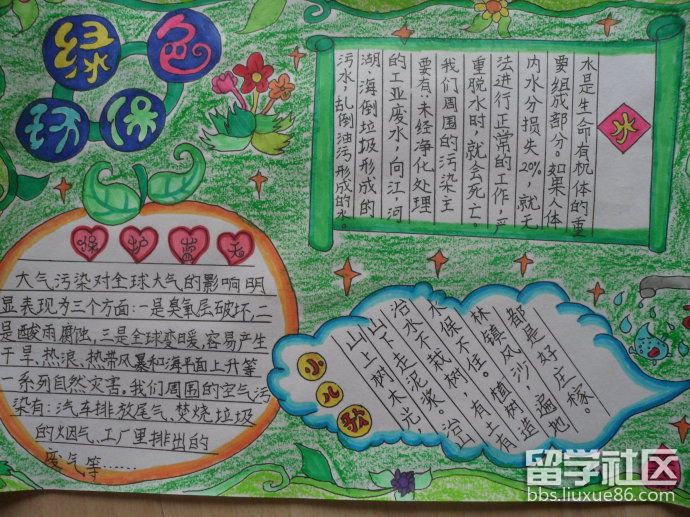 绿色
环保
保护蓝天
大气污染对全球大气的影响明
显表现为三个方面:一是臭氧层破坏,二
是酸雨腐蚀,三是全球变暖,容易产生
干旱、热浪、热带风暴和海平面上升等
一系列自然灾害。我们周围的空气污
染有:汽车排放尾气、焚烧垃圾
的烟气、工厂里排出的
废气等……
水
水是生命有机体的重
要组成部分。如果人体
内水分损失20%,就无
法进行正常的工作,严
重脱水时,就会死亡。
我们周围的污染主
要有:未经净化处理
的工业废水,向江,河
湖,海倒垃圾形成的
污水,乱倒油污形成的水。
小儿歌
山上树木光,
山下走泥浆。治山
治水不栽树,有土
水保不住。植树造
林镇风沙,遍地
都是好庄稼。
留学社区
bbs.liuxue86.com